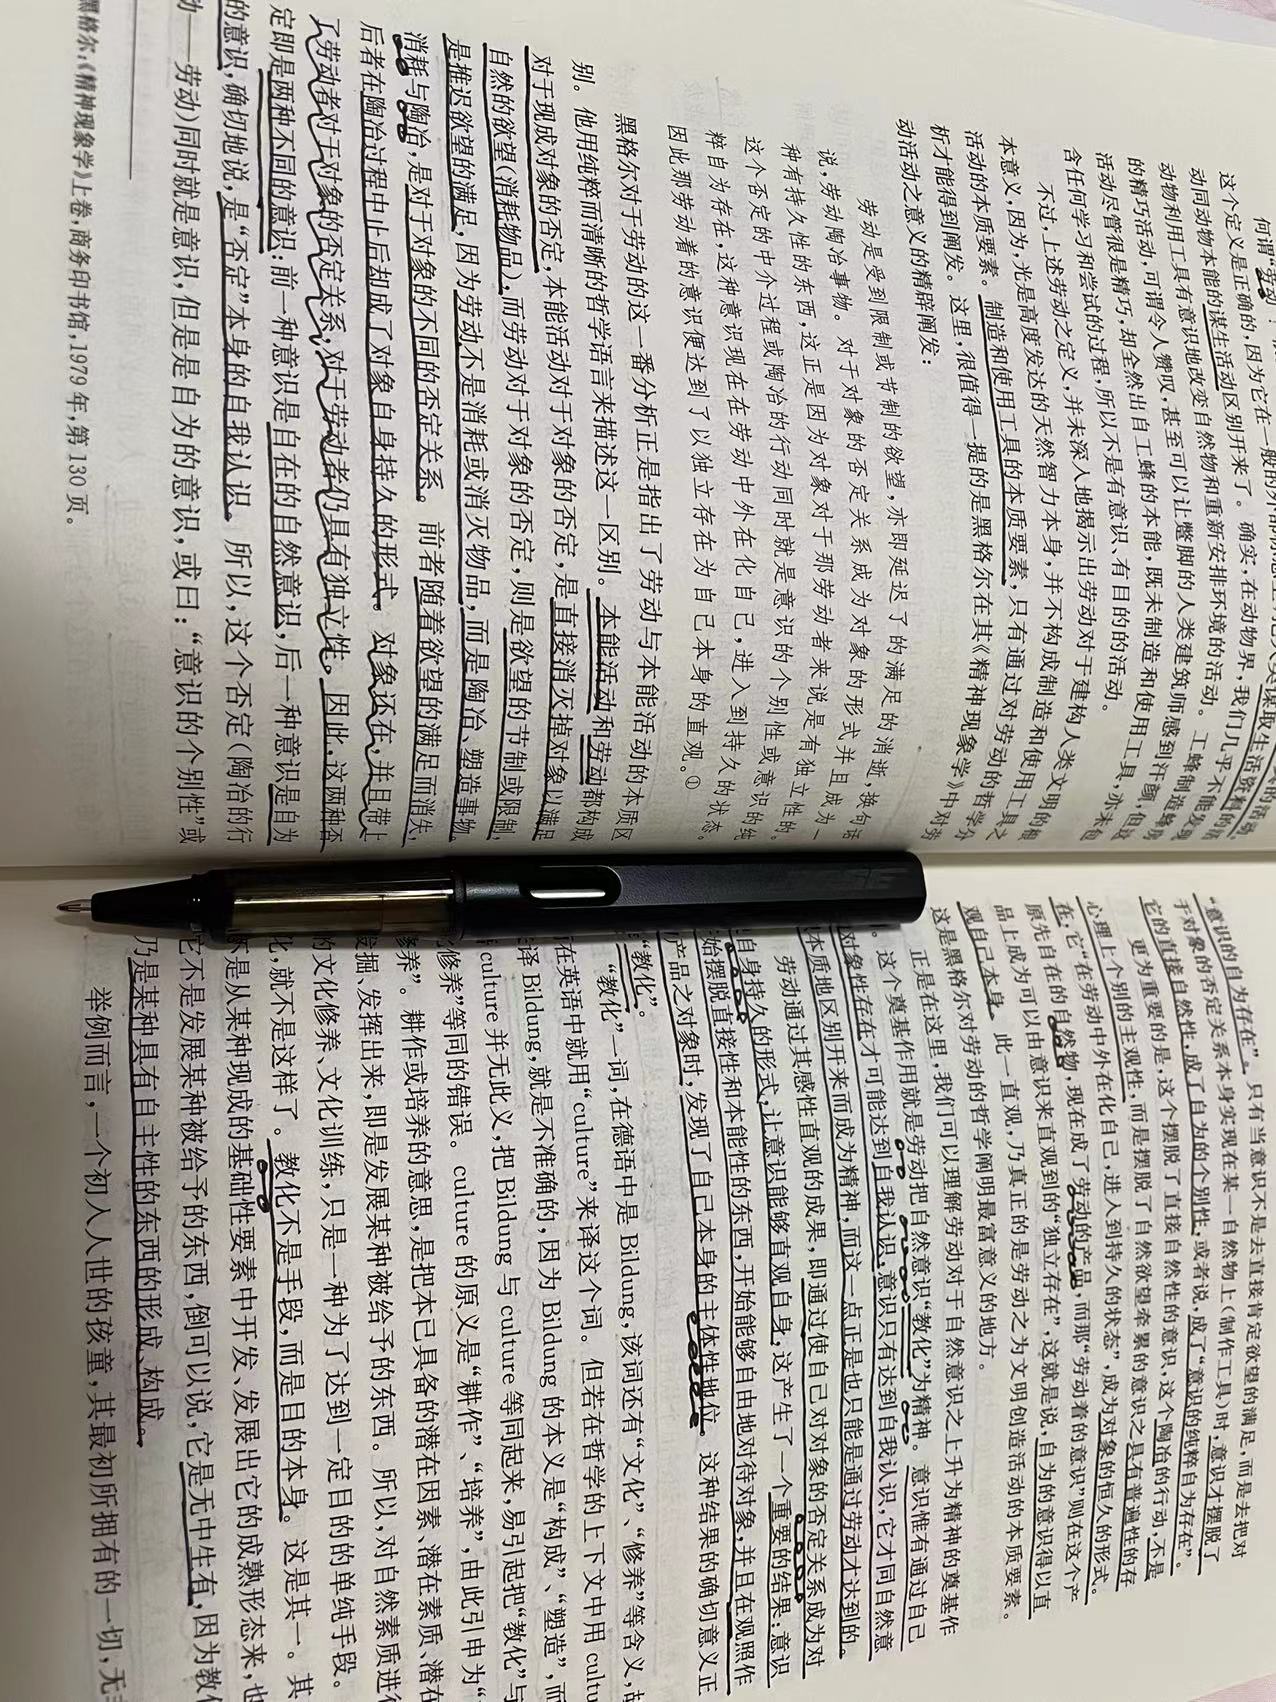 何谓“劳动”
这个定义是正确的，因为它在一般的外部形态上把人类谋取生活资料的活动
动同动物本能的谋生活动区别开来了。确实，在动物界，我们几乎不能发现
动物利用工具有意识地改变自然物和重新安排环境的活动。工蜂制造蜂房
的精巧活动，可谓令人赞叹，甚至可以让蹩脚的人类建筑师感到汗颜，但这
活动尽管很是精巧，却全然出自工蜂的本能，既未制造和使用工具，亦未包
含任何学习和尝试的过程，所以不是有意识、有目的的活动。
不过，上述劳动之定义，并未深入地揭示出劳动对于建构人类文明的根
本意义，因为，光是高度发达的天然智力本身，并不构成制造和使用工具之
活动的本质要素。制造和使用工具的本质要素，只有通过对劳动的哲学分
析才能得到阐发。这里，很值得一提的是黑格尔在其《精神现象学》中对劳
动活动之意义的精辟阐发：
劳动是受到限制或节制的欲望，亦即延迟了的满足的消逝，换句话
说，劳动陶冶事物。对于对象的否定关系成为对象的形式并且成为一
种有持久性的东西，这正是因为对象对于那劳动者来说是有独立性的。
这个否定的中介过程或陶冶的行动同时就是意识的个别性或意识的纯
粹自为存在，这种意识现在在劳动中外在化自己，进入到持久的状态。
因此那劳动着的意识便达到了以独立存在为自己本身的直观。①
黑格尔对于劳动的这一番分析正是指出了劳动与本能活动的本质区
别。他用纯粹而清晰的哲学语言来描述这一区别。本能活动和劳动都构成
对于现成对象的否定，本能活动对于对象的否定，是直接消灭掉对象以满足
自然的欲望（消耗物品），而劳动对于对象的否定，则是欲望的节制或限制，
是推迟欲望的满足，因为劳动不是消耗或消灭物品，而是陶冶、塑造事物。
消耗与陶冶，是对于对象的不同的否定关系。前者随着欲望的满足而消失，
后者在陶冶过程中止后却成了对象自身持久的形式。对象还在，并且带上
了劳动者对于对象的否定关系，对于劳动者仍具有独立性。因此，这两种否
定即是两种不同的意识：前一种意识是自在的自然意识，后一种意识是自为
的意识，确切地说，是“否定”本身的自我认识。所以，这个否定（陶冶的行
动——劳动）同时就是意识，但是是自为的意识，或曰：“意识的个别性”或
黑格尔：《精神现象学》上卷，商务印书馆，1979年，第130页。
“意识的自为存在”。只有当意识不是去直接肯定欲望的满足，而是去把对
于对象的否定关系本身实现在某一自然物上（制作工具）时，意识才摆脱了
它的直接自然性，成了自为的个别性，或者说，成了“意识的纯粹自为存在”。
更为重要的是，这个摆脱了直接自然性的意识，这个陶冶的行动，不是
心理上个别的主观性，而是摆脱了自然欲望牵累的意识之具有普遍性的存
在，它“在劳动中外在化自己，进入到持久的状态”，成为对象的恒久的形式。
原先自在的自然物，现在成了劳动的产品，而那“劳动着的意识”则在这个产
品上成为可以由意识来直观到的“独立存在”，这就是说，自为的意识得以直
观自己本身。此一直观，乃真正的是劳动之为文明创造活动的本质要素。
这是黑格尔对劳动的哲学阐明最富意义的地方。
正是在这里，我们可以理解劳动对于自然意识之上升为精神的奠基作
。这个奠基作用就是劳动把自然意识“教化”为精神。意识惟有通过自己
对象性存在才可能达到自我认识，意识只有达到自我认识，它才同自然意
本质地区别开来而成为精神，而这一点正是也只能是通过劳动才达到的。
劳动通过其感性直观的成果，即通过使自己对对象的否定关系成为对
自身持久的形式，让意识能够直观自身，这产生了一个重要的结果：意识
始摆脱直接性和本能性的东西，开始能够自由地对待对象，并且在观照作
产品之对象时，发现了自己本身的主体性地位。这种结果的确切意义正
“教化”。
“教化”一词，在德语中是Bildung，该词还有“文化”、“修养”等含义，故
在英语中就用“culture”来译这个词。但若在哲学的上下文中用cultu
译Bildung，就是不准确的，因为Bildung的本义是“构成”、“塑造”，而
culture并无此义，把Bildung与culture等同起来，易引起把“教化”与
“修养”等同的错误。culture的原义是“耕作”、“培养”，由此引申为“
修养”。耕作或培养的意思，是把本已具备的潜在因素、潜在素质、潜在
发掘、发挥出来，即是发展某种被给予的东西。所以，对自然素质进行
的文化修养、文化训练，只是一种为了达到一定目的的单纯手段。
化，就不是这样了。教化不是手段，而是目的本身。这是其一。其
不是从某种现成的基础性要素中开发、发展出它的成熟形态来，也
它不是发展某种被给予的东西，倒可以说，它是无中生有，因为教化
乃是某种具有自主性的东西的形成、构成。
举例而言，一个初入人世的孩童，其最初所拥有的一切，无